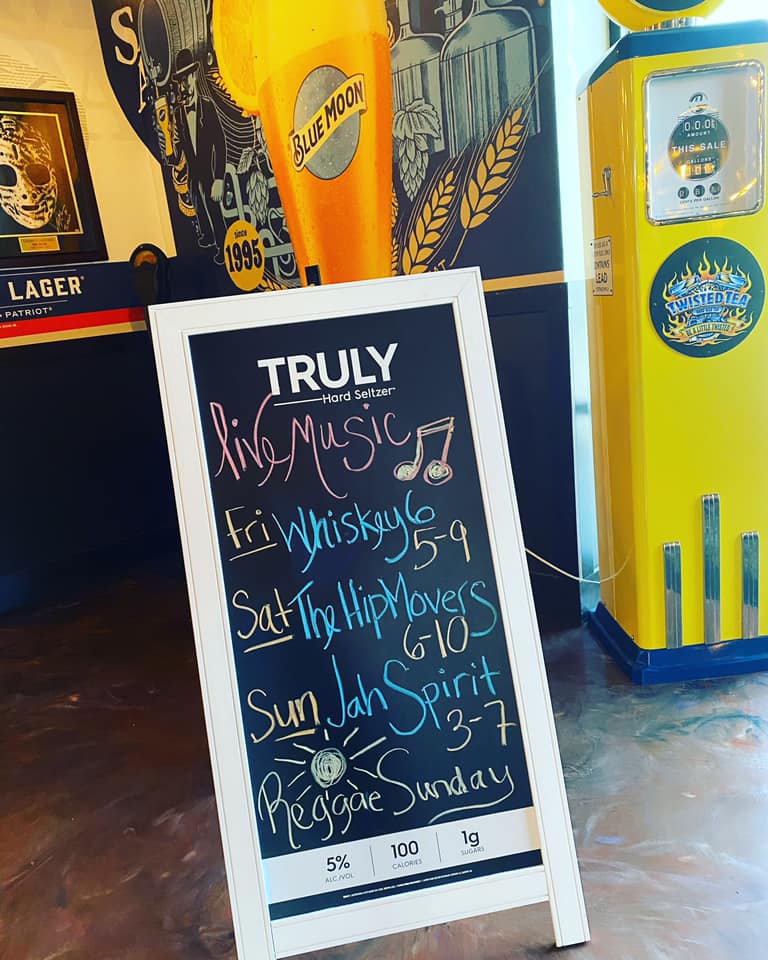 S
BLUE MOON
since
1995
LAGER
PATRIOT
AMOUNT
THIS SALE
GALLONS
CENTS PER GALLON
CONTAINS
LEAD
TWISTED TEA
TRULY
Hard Seltzer
live Music
Fri Whiskey 6
5-9
Sat The Hip Movers
6-10
Sun Jah Spirit
3-7
Reggae Sunday
5% 100 1g
ALC./VOL CALORIES SUGARS